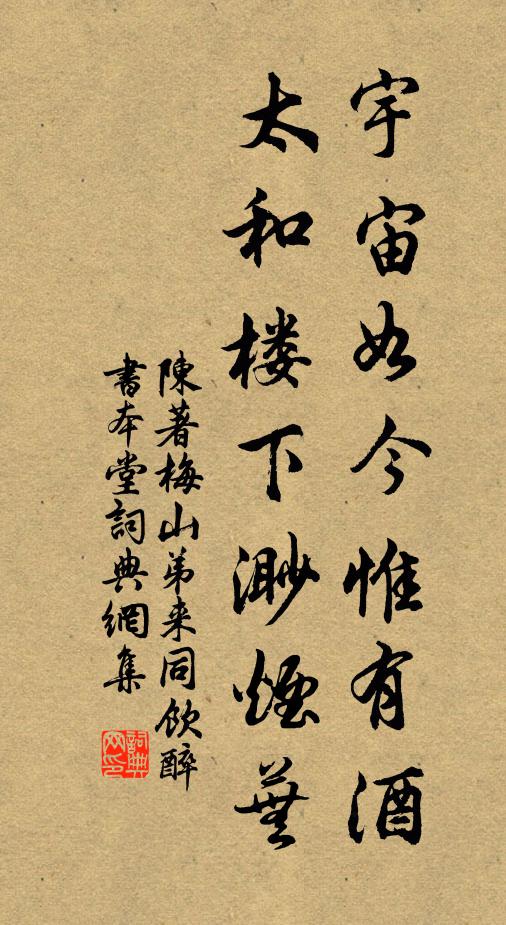 宇宙如今惟有酒
太和楼下渺煙蕪
陳著梅山弟来同飲醉
書本堂詞典網集
詞典
网印